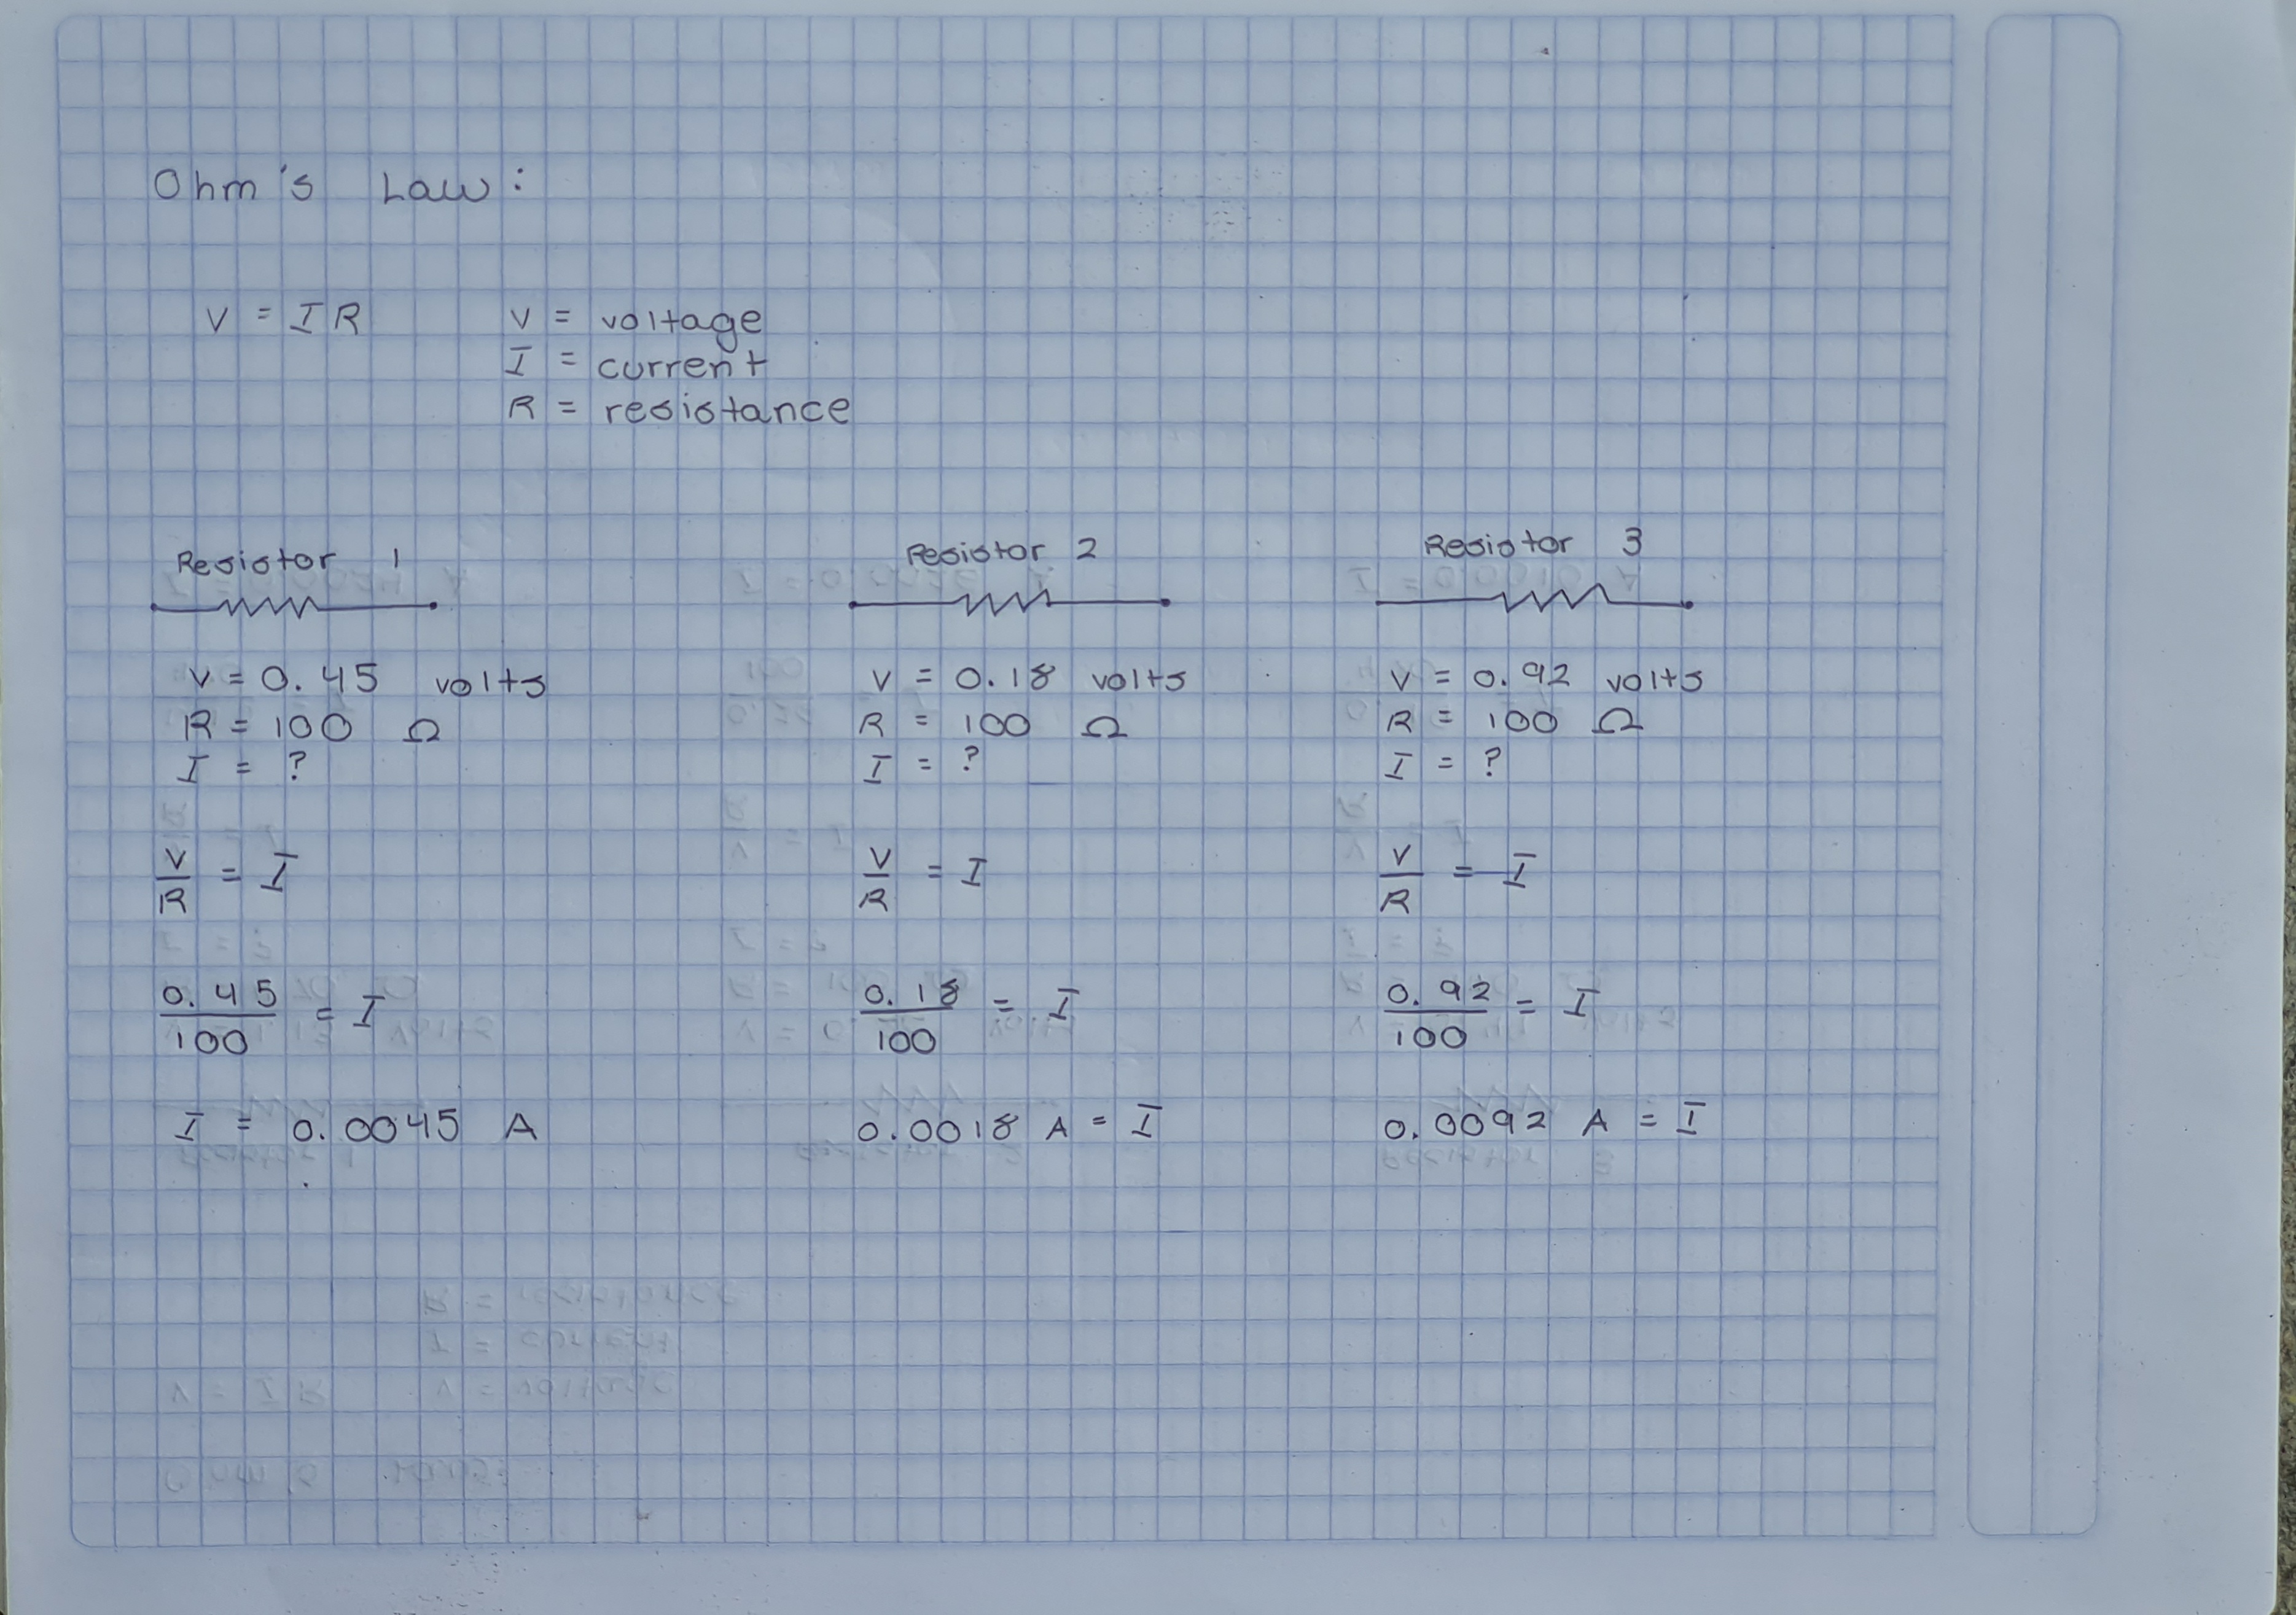 Ohm's Law:
V = IR
V = voltage
I = current
R = resistance
Resistor 1
V = 0.45 volts
R = 100 Ω
I = ?
V/R = I
0.45/100 = I
I = 0.0045 A
Resistor 2
V = 0.18 volts
R = 100 Ω
I = ?
V/R = I
0.18/100 = I
0.0018 A = I
Resistor 3
V = 0.92 volts
R = 100 Ω
I = ?
V/R = I
0.92/100 = I
0.0092 A = I